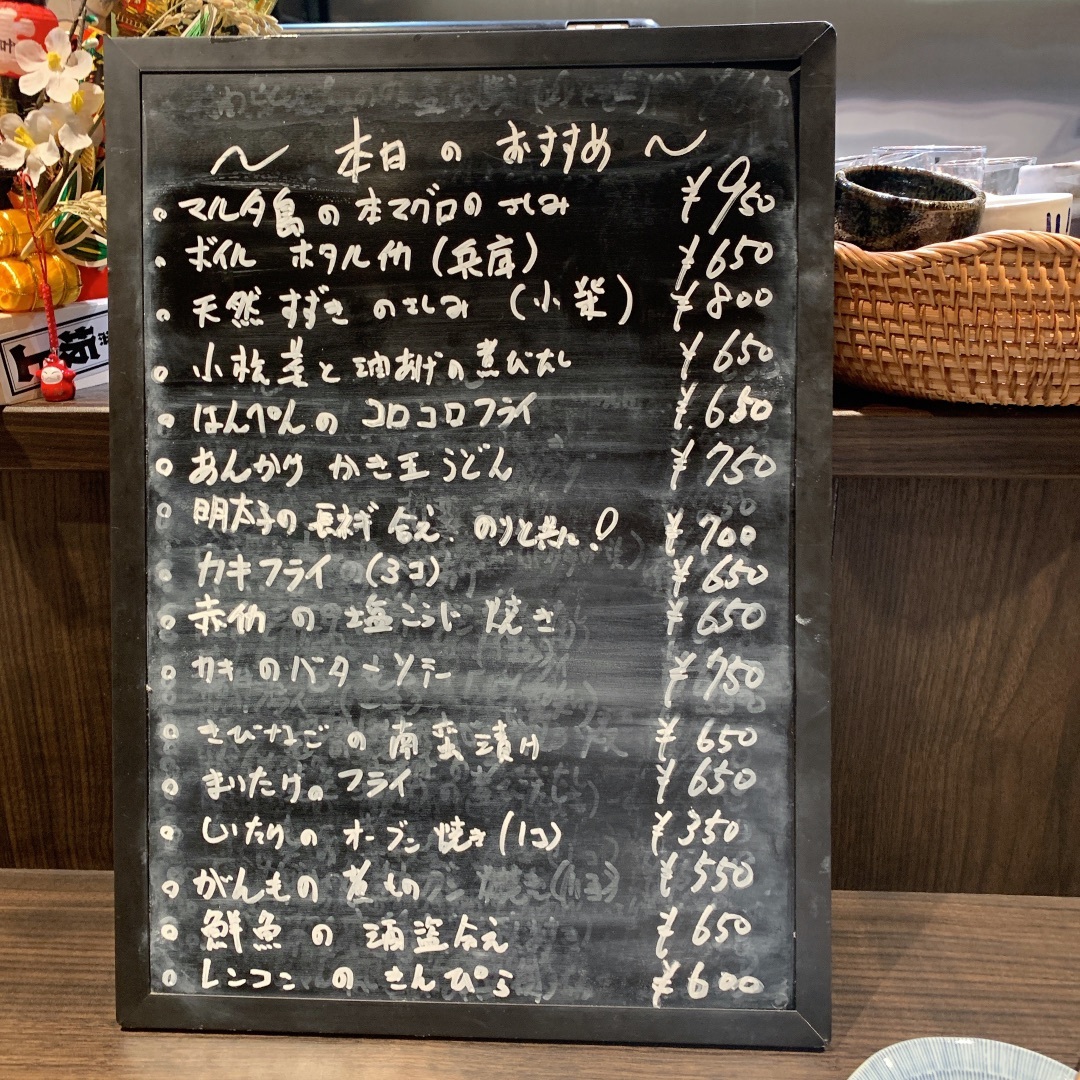 〜 本日 の おすすめ 〜
マルタ島の本マグロの さしみ ¥950
ボイル ホタルイカ (兵庫) ¥650
天然 すずき のさしみ (小柴) ¥800
小松菜と油あげの煮びたし ¥650
はんぺんの コロコロフライ ¥650
あんかけ かき玉 うどん ¥750
明太子の長ネギ 合え、のりと共に! ¥700
カキフライ (3コ) ¥650
赤イカ の 塩こうじ 焼き ¥650
カキ のバターソテー ¥750
きびなご の 南蛮漬け ¥650
まいたけの フライ ¥650
しいたけの オーブン焼き (1コ) ¥350
がんもの 煮もの ¥550
鮮魚 の 酒盗合え ¥650
レンコン の きんぴら ¥600